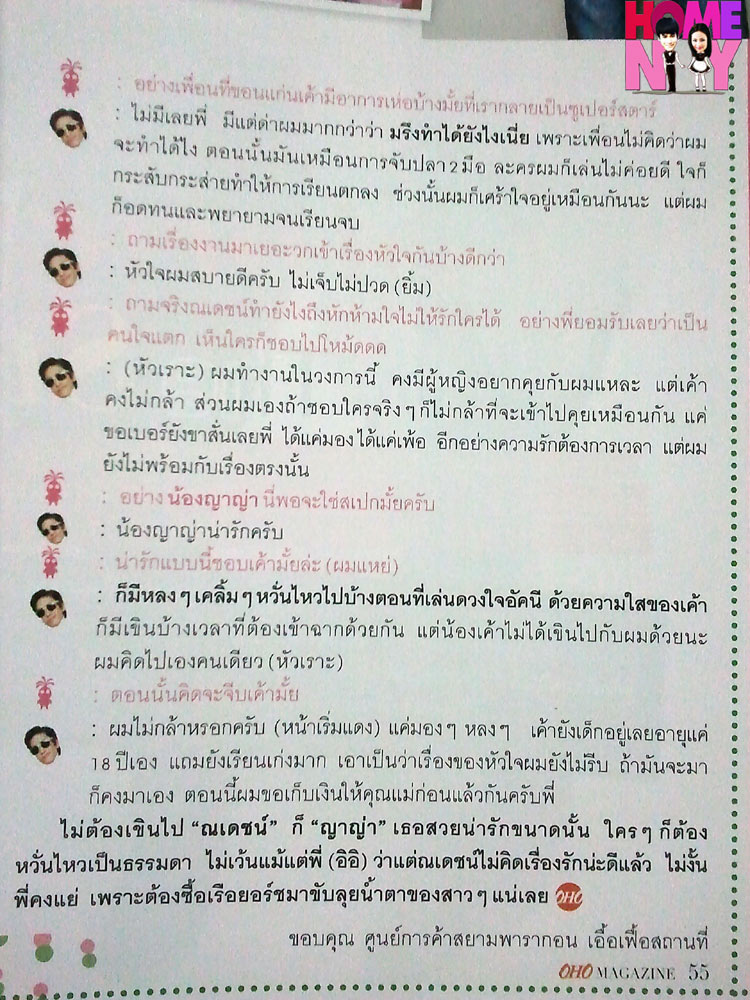 HOME
NY
: อย่างเพื่อนที่ขอนแก่นเค้ามีอาการเห่อบ้างมั้ยที่เรากลายเป็นซูเปอร์สตาร์
: ไม่มีเลยพี่ มีแต่ด่าผมมากกว่าว่า มรึงทำได้ยังไงเนี่ย เพราะเพื่อนไม่คิดว่าผม
จะทำได้ไง ตอนนั้นมันเหมือนการจับปลา 2 มือ ละครผมก็เล่นไม่ค่อยดี ใจก็
กระสับกระส่ายทำให้การเรียนตกลง ช่วงนั้นผมก็เศร้าใจอยู่เหมือนกันนะ แต่ผม
ก็อดทนและพยายามจนเรียนจบ
: ถามเรื่องงานมาเยอะวกเข้าเรื่องหัวใจกันบ้างดีกว่า
: หัวใจผมสบายดีครับ ไม่เจ็บไม่ปวด (ยิ้ม)
: ถามจริงณเดชน์ทำยังไงถึงหักห้ามใจไม่ให้รักใครได้ อย่างพี่ยอมรับเลยว่าเป็น
คนใจแตก เห็นใครก็ชอบไปโหม้ดดด
: (หัวเราะ) ผมทำงานในวงการนี้ คงมีผู้หญิงอยากคุยกับผมแหละ แต่เค้า
คงไม่กล้า ส่วนผมเองถ้าชอบใครจริง ๆ ก็ไม่กล้าที่จะเข้าไปคุยเหมือนกัน แค่
ขอเบอร์ยังขาสั่นเลยพี่ ได้แค่มอง ได้แค่เพ้อ อีกอย่างความรักต้องการเวลา แต่ผม
ยังไม่พร้อมกับเรื่องตรงนั้น
: อย่าง น้องญาญ่า นี่พอจะใช่สเปกมั้ยครับ
: น้องญาญ่าน่ารักครับ
: น่ารักแบบนี้ชอบเค้ามั้ยล่ะ (ผมแหย่)
: ก็มีหลง ๆ เคลิ้ม ๆ หวั่นไหวไปบ้างตอนที่เล่นดวงใจอัคนี ด้วยความใสของเค้า
ก็มีเขินบ้างเวลาที่ต้องเข้าฉากด้วยกัน แต่น้องเค้าไม่ได้เขินไปกับผมด้วยนะ
ผมคิดไปเองคนเดียว (หัวเราะ)
: ตอนนั้นคิดจะจีบเค้ามั้ย
: ผมไม่กล้าหรอกครับ (หน้าเริ่มแดง) แค่มอง ๆ หลง ๆ เค้ายังเด็กอยู่เลยอายุแค่
18 ปีเอง แถมยังเรียนเก่งมาก เอาเป็นว่าเรื่องของหัวใจผมยังไม่รีบ ถ้ามันจะมา
ก็คงมาเอง ตอนนี้ผมขอเก็บเงินให้คุณแม่ก่อนแล้วกันครับพี่
ไม่ต้องเขินไป “ณเดชน์” ก็ “ญาญ่า” เธอสวยน่ารักขนาดนั้น ใคร ๆ ก็ต้อง
หวั่นไหวเป็นธรรมดา ไม่เว้นแม้แต่พี่ (อิอิ) ว่าแต่ณเดชน์ไม่คิดเรื่องรักน่ะดีแล้ว ไม่งั้น
พี่คงแย่ เพราะต้องซื้อเรือยอร์ชมาขับลุยน้ำตาของสาว ๆ แน่เลย OHO
ขอบคุณ ศูนย์การค้าสยามพารากอน เอื้อเฟื้อสถานที่
OHO MAGAZINE 55